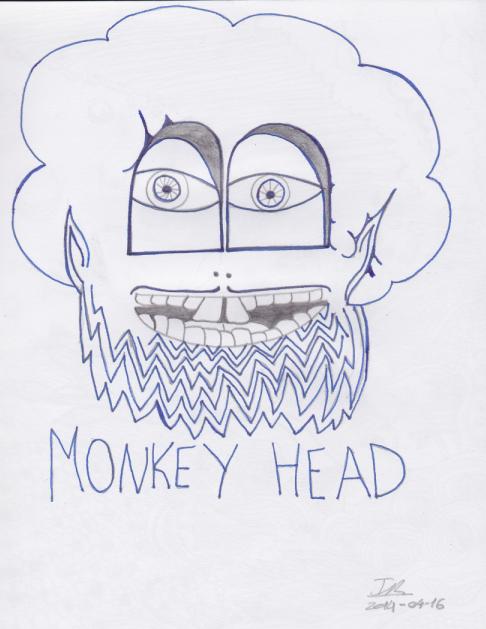 MONKEY HEAD
2014-04-16